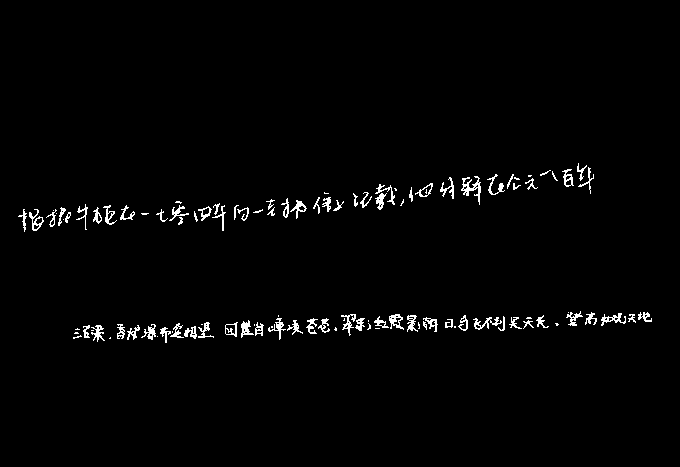 根据牛顿在一七零四年的一信上记载,他在公元八百年
三石梁.香炉瀑布遥相望 回崖沓嶂凌苍苍.翠影红霞映朝日鸟飞不到吴天长.登高壮观天地